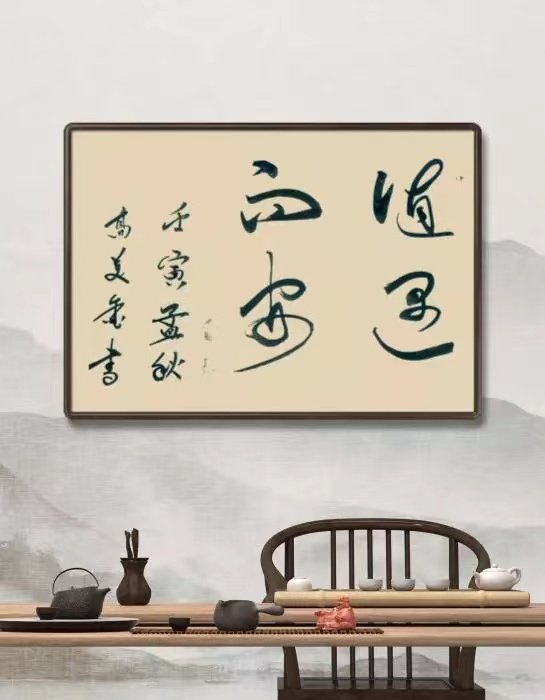 随遇
而安
壬寅孟秋
高美金书